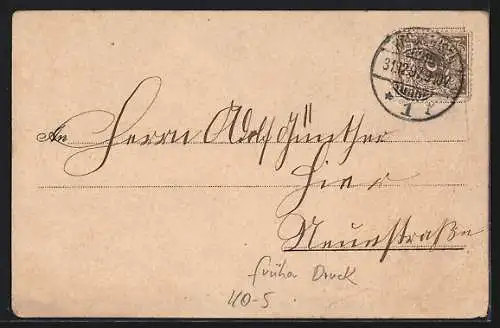 An Herrn Adolf Günther
Hier
Neuestraße
früher Druck
40-5
31.12.
* 1 f